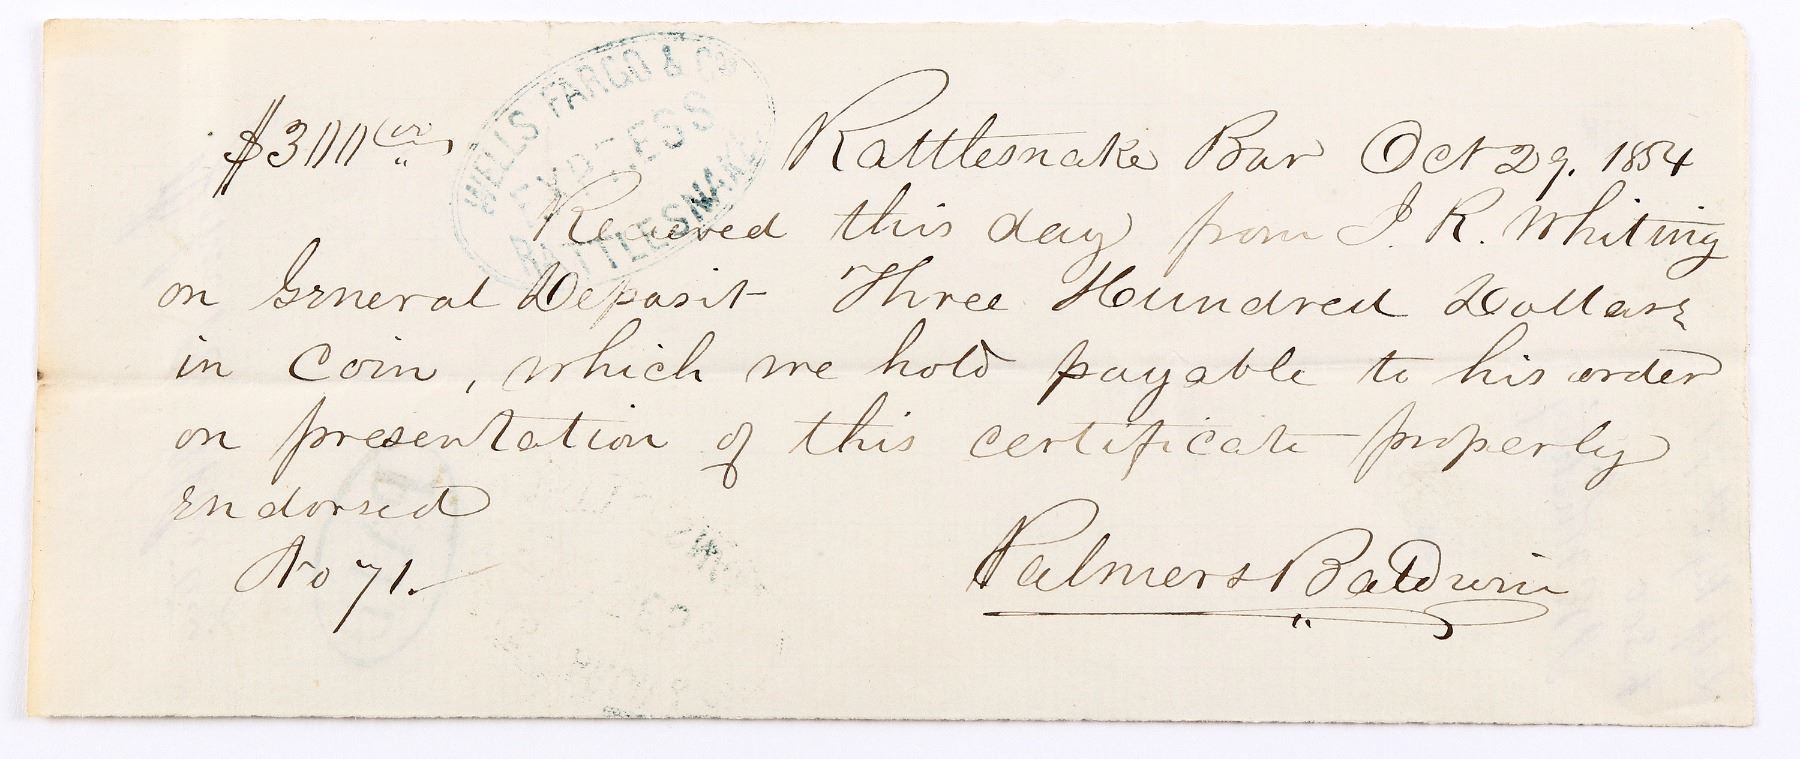 WELLS FARGO & CO
EXPRESS
RATTLESNAKE
$300 00
Rattlesnake Bar Oct 29. 1854
Received this day from J. R. Whiting
on General Deposit Three Hundred Dollars
in Coin, which we hold payable to his order
on presentation of this certificate properly
endorsed
No 71.
Palmer & Baldwin